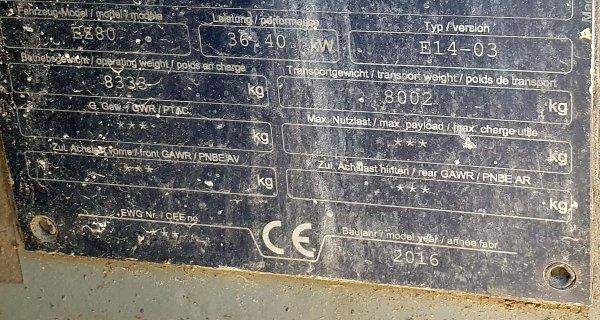 Fahrzeug-Model / model / modèle
Leistung / performance
Typ / version
EZ80
36.40 kW
E14-03
Betriebsgewicht / operating weight / poids en charge
Transportgewicht / transport weight / poids de transport
8333 kg
8002 kg
G. Gew. / GWR / PTAC
Max. Nutzlast / max. payload / max. charge utile
*** kg
*** kg
Zul. Achslast vorne / front GAWR / PNBE AV
Zul. Achslast hinten / rear GAWR / PNBE AR
*** kg
*** kg
EWG Nr. / CEE no
CE
Baujahr / model year / année fabr.
2016